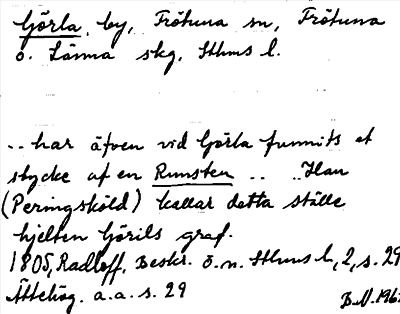 Görla, by, Frötuna sn, Frötuna
o. Länna skg, Sthms l.
.. har äfven vid Görla funnits et
stycke af en Runsten .. .. Han
(Peringsköld) kallar detta ställe
hjelten Görils graf.
1805, Radloff, Beskr. ö. n. Sthms l, 2, s. 29
Ättehög. a.a. s. 29
B.N. 196